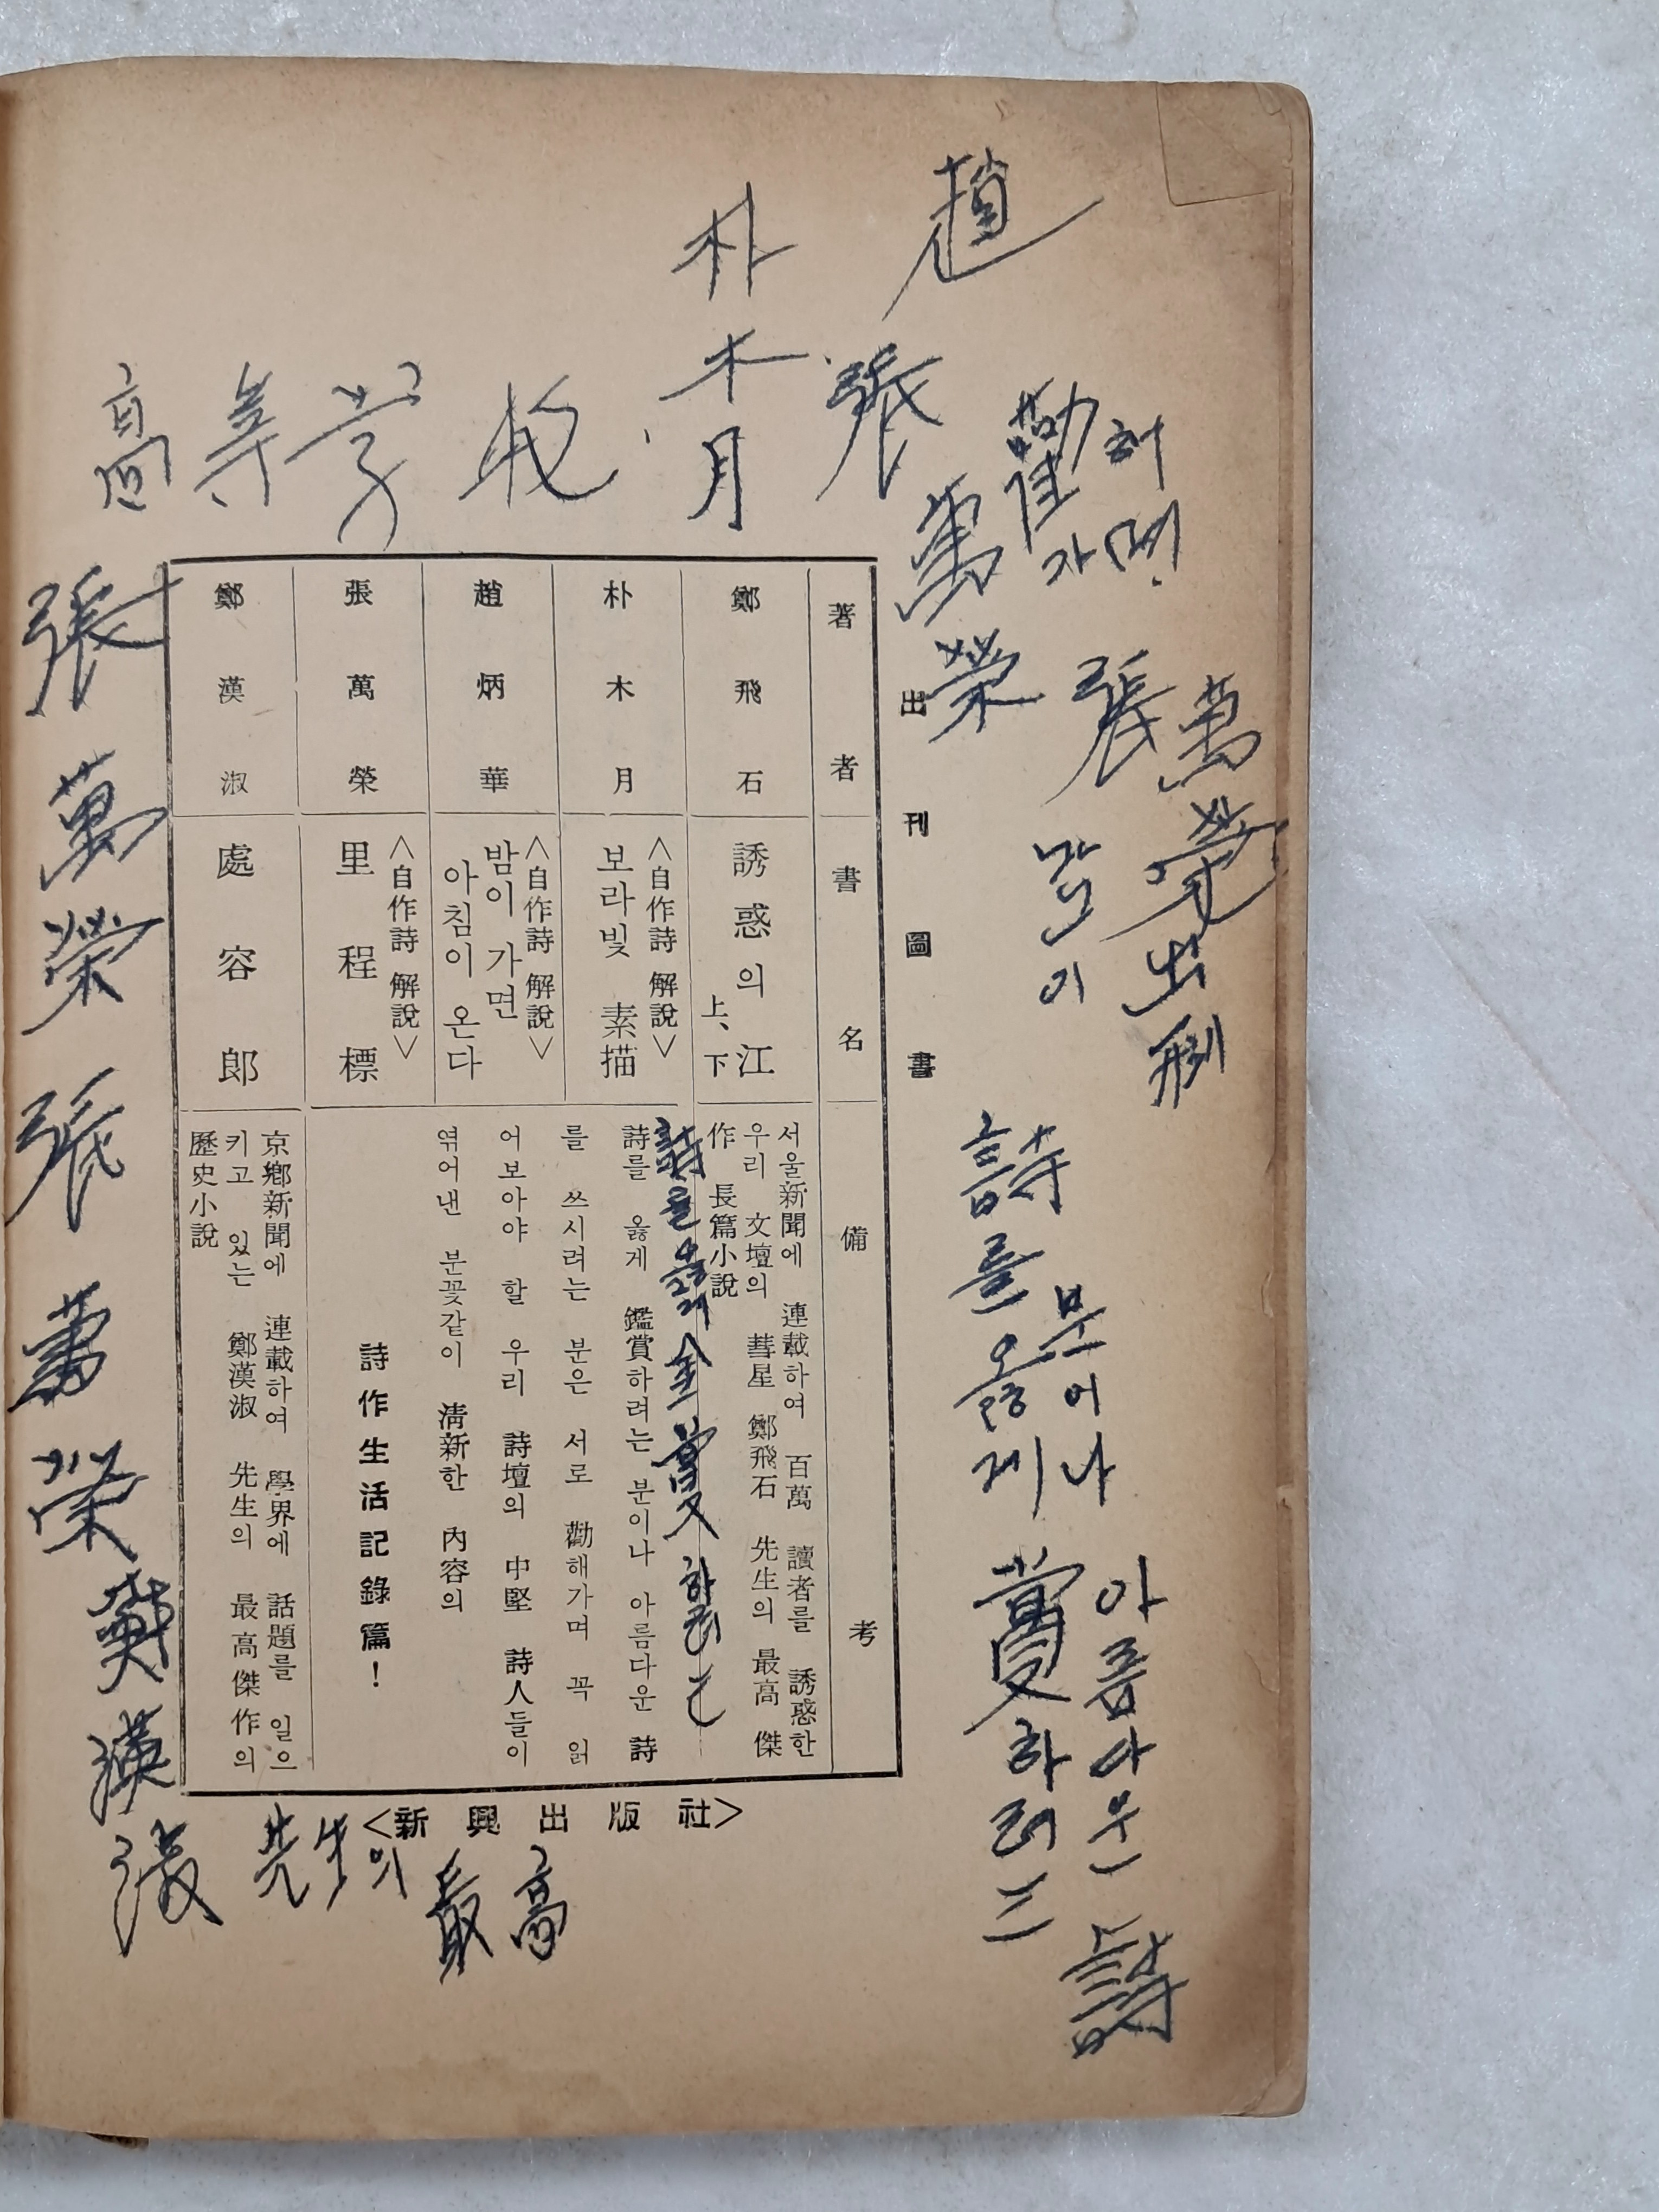 趙
朴木月
高等学校
張萬榮
勸하
가며
張萬榮出刊
많이
張萬榮
張萬榮
鄭漢
先生의
最高
詩를 옳게
분이나
아름다운 詩
하려는
出刊圖書
著者
書名
備考
鄭飛石
誘惑의 江
上、下
서울新聞에 連載하여 百萬 讀者를 誘惑한
우리 文壇의 彗星 鄭飛石 先生의 最高 傑
作 長篇小說
朴木月
<自作詩 解說>
보라빛 素描
趙炳華
<自作詩 解說>
밤이 가면
아침이 온다
張萬榮
<自作詩 解說>
里程標
詩를 옳게 鑑賞하려는 분이나 아름다운 詩
를 쓰시려는 분은 서로 勸해가며 꼭 읽
어보아야 할 우리 詩壇의 中堅 詩人들이
엮어낸 분꽃같이 淸新한 內容의
詩作生活記錄篇!
鄭漢淑
處容郞
京鄕新聞에 連載하여 學界에 話題를 일으
키고 있는 鄭漢淑 先生의 最高傑作의
歷史小說
<新興出版社>